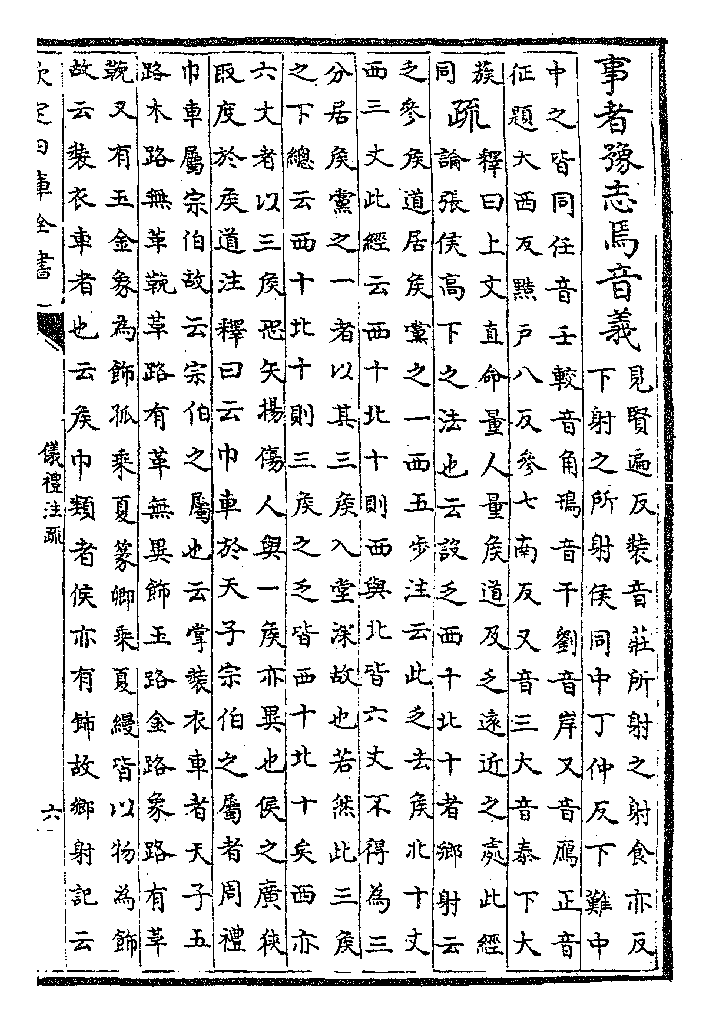 事者豫志焉音義
見賢遍反裝音莊所射之射食亦反
下射之所射侯同中丁仲反下難中
中之皆同任音壬較音角鳱音干劉音岸又音鴈正音
征題大西反黠戶八反參七南反又音三大音泰下大
蔟
同
疏
釋曰上文直命量人量矦道及乏遠近之處此經
論張侯高下之法也云設乏西十北十者鄉射云
之參矦道居矦黨之一西五步注云此乏去矦北十丈
西三丈此經云西十北十則西與北皆六丈不得為三
分居矦黨之一者以其三矦入堂深故也若然此三矦
之下總云西十北十則三矦之乏皆西十北十矣西亦
六丈者以三矦恐矢揚傷人與一矦亦異也侯之廣狹
取度於矦道注釋曰云巾車於天子宗伯之屬者周禮
巾車屬宗伯故云宗伯之屬也云掌裝衣車者天子五
路木路無革鞔革路有革無異飾玉路金路象路有革
鞔又有玉金象為飾孤乘夏篆卿乘夏縵皆以物為飾
故云裝衣車者也云矦巾類者侯亦有飾故鄉射記云
欽定四庫全書
儀禮注疏
六